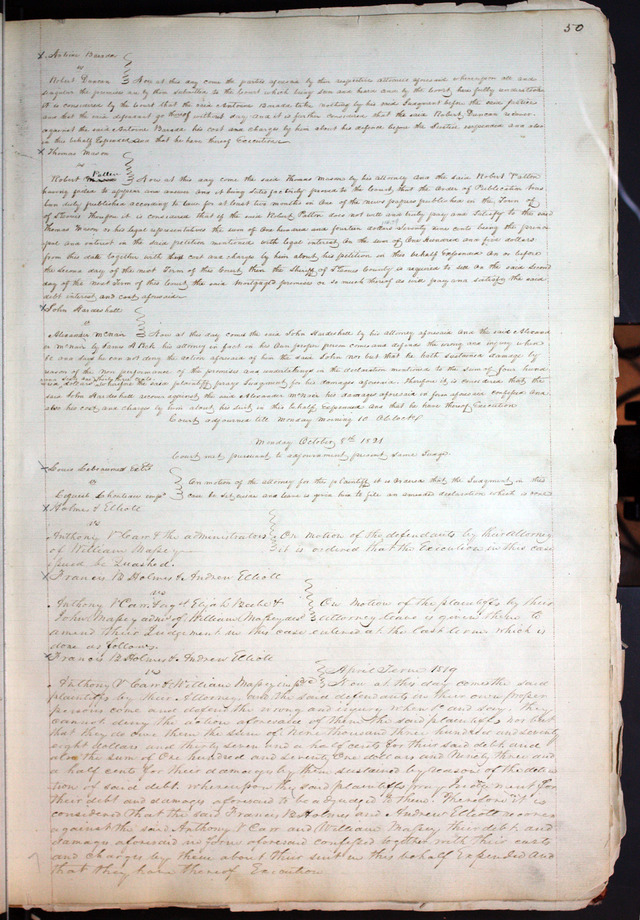 50
Antoine Barada
vs
Robert Duncan Now at this day come the parties aforesaid by their respective attornies aforesaid whereupon all and
singular the premises are by them submitted to the Court which being seen and heard and by the Court here fully understood
it is considered by the Court that the said Antoine Barada take nothing by his said Judgment before the said justice
and that the said defendant go thereof without day and it is further considered that the said Robert Duncan recover
against the said Antoine Barada his cost and charges by him about his defence before the Justice expended and also
in this behalf Expended and that he have thereof Execution
Thomas Mason
vs
Robert Patton Now at this day come the said Thomas Mason by his attorney and the said Robert Patton
having failed to appear and answer and it being satisfactorily proved to the Court, that the Order of Publication has
been duly published according to law for at least two months in one of the news papers published in the Town of
St Louis Therefore it is considered that if the said Robert Patton does not well and truly pay and satisfy to the said
Thomas Mason or his legal representatives the sum of One hundred and fourteen dollars seventy nine cents being the principal
and interest in the said petition mentioned with legal interest on the sum of One Hundred and five dollars
from this date together with cost and charges by him about his petition in this behalf Expended on or before
the second day of the next Term of this Court then the Sheriff of St Louis County is required to sell on the said second
day of the next Term of this Court the said Mortgaged premises or so much thereof as will pay and satisfy the said
debt interest and cost aforesaid
John Hardeshell
vs
Alexander McNair Now at this day comes the said John Hardeshell by his attorney aforesaid and the said Alexand
er McNair by his attorney in fact in his own proper person comes and defends the wrong and injury when
&c and says he can not deny the action aforesaid of him the said John nor but that he hath sustained damage by
reason of the non performance of the promises and undertakings in the declaration mentioned to the sum of four hund
red dollars and thirty three cents wherefore the said plaintiff prays Judgment for his damages aforesaid Therefore it is considered that the
said John Hardeshell recover against the said Alexander McNair his damages aforesaid in form aforesaid confessed and
also his cost and charges by him about his suit in this behalf Expended and that he have thereof Execution
Court adjourned till Monday morning 10 oClock
Monday October 8th 1821
Court met pursuant to adjournment present same Judge
Louis Lebeaume
vs
On motion of the attorney for the plaintiff it is ordered that the Judgment in this
case be set aside and leave is given him to file an amended declaration which is done
Holmes & Elliott
vs
Anthony V Carr & the administrators On Motion of the defendants by their Attorney
of William Massey it is ordered that the Execution in this case
issued be Quashed.
Francis B Holmes & Andrew Elliott
vs
Anthony V Carr On Motion of the plaintiffs by their
John Massey admr of William Massey decd Attorney leave is given them to
amend their Judgement in this case entered at the last term which is
done as follows
Francis B Holmes & Andrew Elliott
vs April Term 1819
Anthony V Carr & William Massey Now at this day comes the said
plaintiffs by their Attorney and the said defendants in their own proper
persons come and defend the wrong and injury when &c and say they
cannot deny the action aforesaid of them the said plaintiffs nor but
that they do owe them the sum of Nine thousand three hundred and seventy
eight dollars and thirty seven and a half cents for their said debt and
also the sum of One hundred and seventy One dollars and Ninety three and
a half cents for their damages by them sustained by reason of the deten
tion of said debt whereupon the said plaintiffs pray Judgement for
their debt and damages aforesaid to be adjudged to them Therefore it is
considered that the said Francis B Holmes and Andrew Elliott recover
against the said Anthony V Carr and William Massey their debt and
damages aforesaid in form aforesaid confessed together with their costs
and charges by them about their suit in this behalf Expended and
that they have thereof Execution